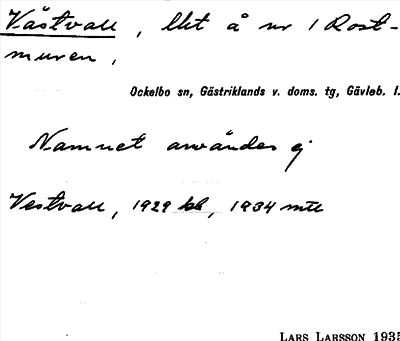 Västvall, lht å nr 1 Rost-
muren,
Ockelbo sn, Gästriklands v. doms. tg, Gävleb. l.
Namnet användes ej
Vestvall, 1929 kbl, 1934 mtl
LARS LARSSON 1935